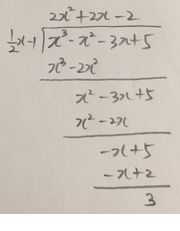 2x² + 2x - 2
½x-1 ) x³ - x² - 3x + 5
x³ - 2x²
x² - 3x + 5
x² - 2x
-x + 5
-x + 2
3